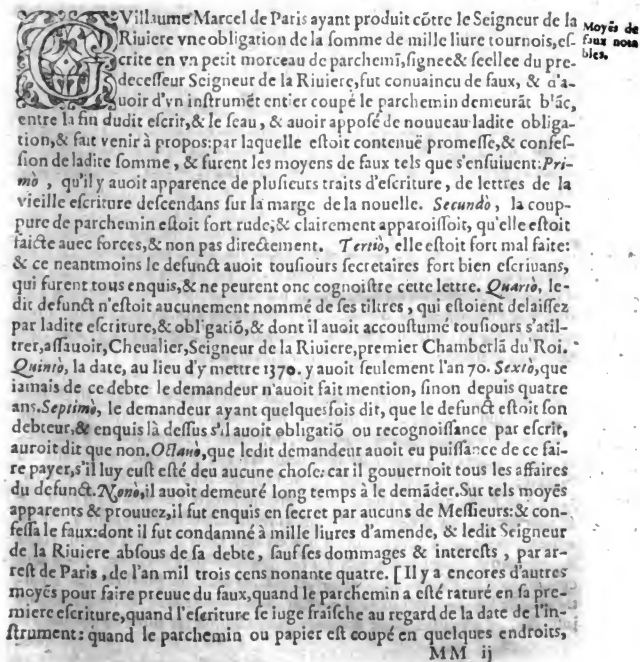 GVillaume Marcel de Paris ayant produit cõtre le Seigneur de la
Riuiere vne obligation de la somme de mille liure tournois, es-
crite en vn petit morceau de parchemĩ, signee & seellee du pre-
decesseur Seigneur de la Riuiere, fut conuaincu de faux, & d'a-
uoir d'vn instrumẽt entier coupé le parchemin demeurãt b'ãc,
entre la fin dudit escrit, & le seau, & auoir apposé de nouueau ladite obliga-
tion, & fait venir à propos: par laquelle estoit contenuë promesse, & confes-
sion de ladite somme, & furent les moyens de faux tels que s'ensuiuent: Pri-
mò, qu'il y auoit apparence de plusieurs traits d'escriture, de lettres de la
vieille escriture descendans sur la marge de la nouelle. Secundò, la coup-
pure de parchemin estoit fort rude; & clairement apparoissoit, qu'elle estoit
faicte auec forces, & non pas directement. Tertiò, elle estoit fort mal faite:
& ce neantmoins le defunct auoit tousiours secretaires fort bien escriuans,
qui furent tous enquis, & ne peurent onc cognoistre cette lettre. Quartò, le-
dit defunct n'estoit aucunement nommé de ses tiltres, qui estoient delaissez
par ladite escriture, & obl'gatiõ, & dont il auoit accoustumé tousiours s'atil-
trer, assauoir, Cheualier, Seigneur de la Riuiere, premier Chamberlã du Roi.
Quintò, la date, au lieu d'y mettre 1370. y auoit seulement l'an 70. Sextò, que
iamais de ce debte le demandeur n'auoit fait mention, sinon depuis quatre
ans. Septimò, le demandeur ayant quelquesfois dit, que le defunct estoit son
debteur, & enquis là dessus s'il auoit obligatiõ ou recognoissance par escrit,
auroit dit que non. Octauò, que ledit demandeur auoit eu puissance de ce fai-
re payer, s'il luy eust esté deu aucune chose: car il gouuernoit tous les affaires
du defunct. Nonò, il auoit demeuré long temps à le demãder. Sur tels moyẽs
apparents & prouuez, il fut enquis en secret par aucuns de Messieurs: & con-
fessa le faux: dont il fut condamné à mille liures d'amende, & ledit Seigneur
de la Riuiere absous de sa debte, sauf ses dommages & interests, par ar-
rest de Paris, de l'an mil trois cens nonante quatre. [Il y a encores d'autres
moyẽs pour faire preuue du faux, quand le parchemin a esté raturé en sa pre-
miere escriture, quand l'escriture se iuge fraische au regard de la date de l'in-
strument: quand le parchemin ou papier est coupé en quelques endroits,
MM ij
Moyẽs de
faux nota
bles,